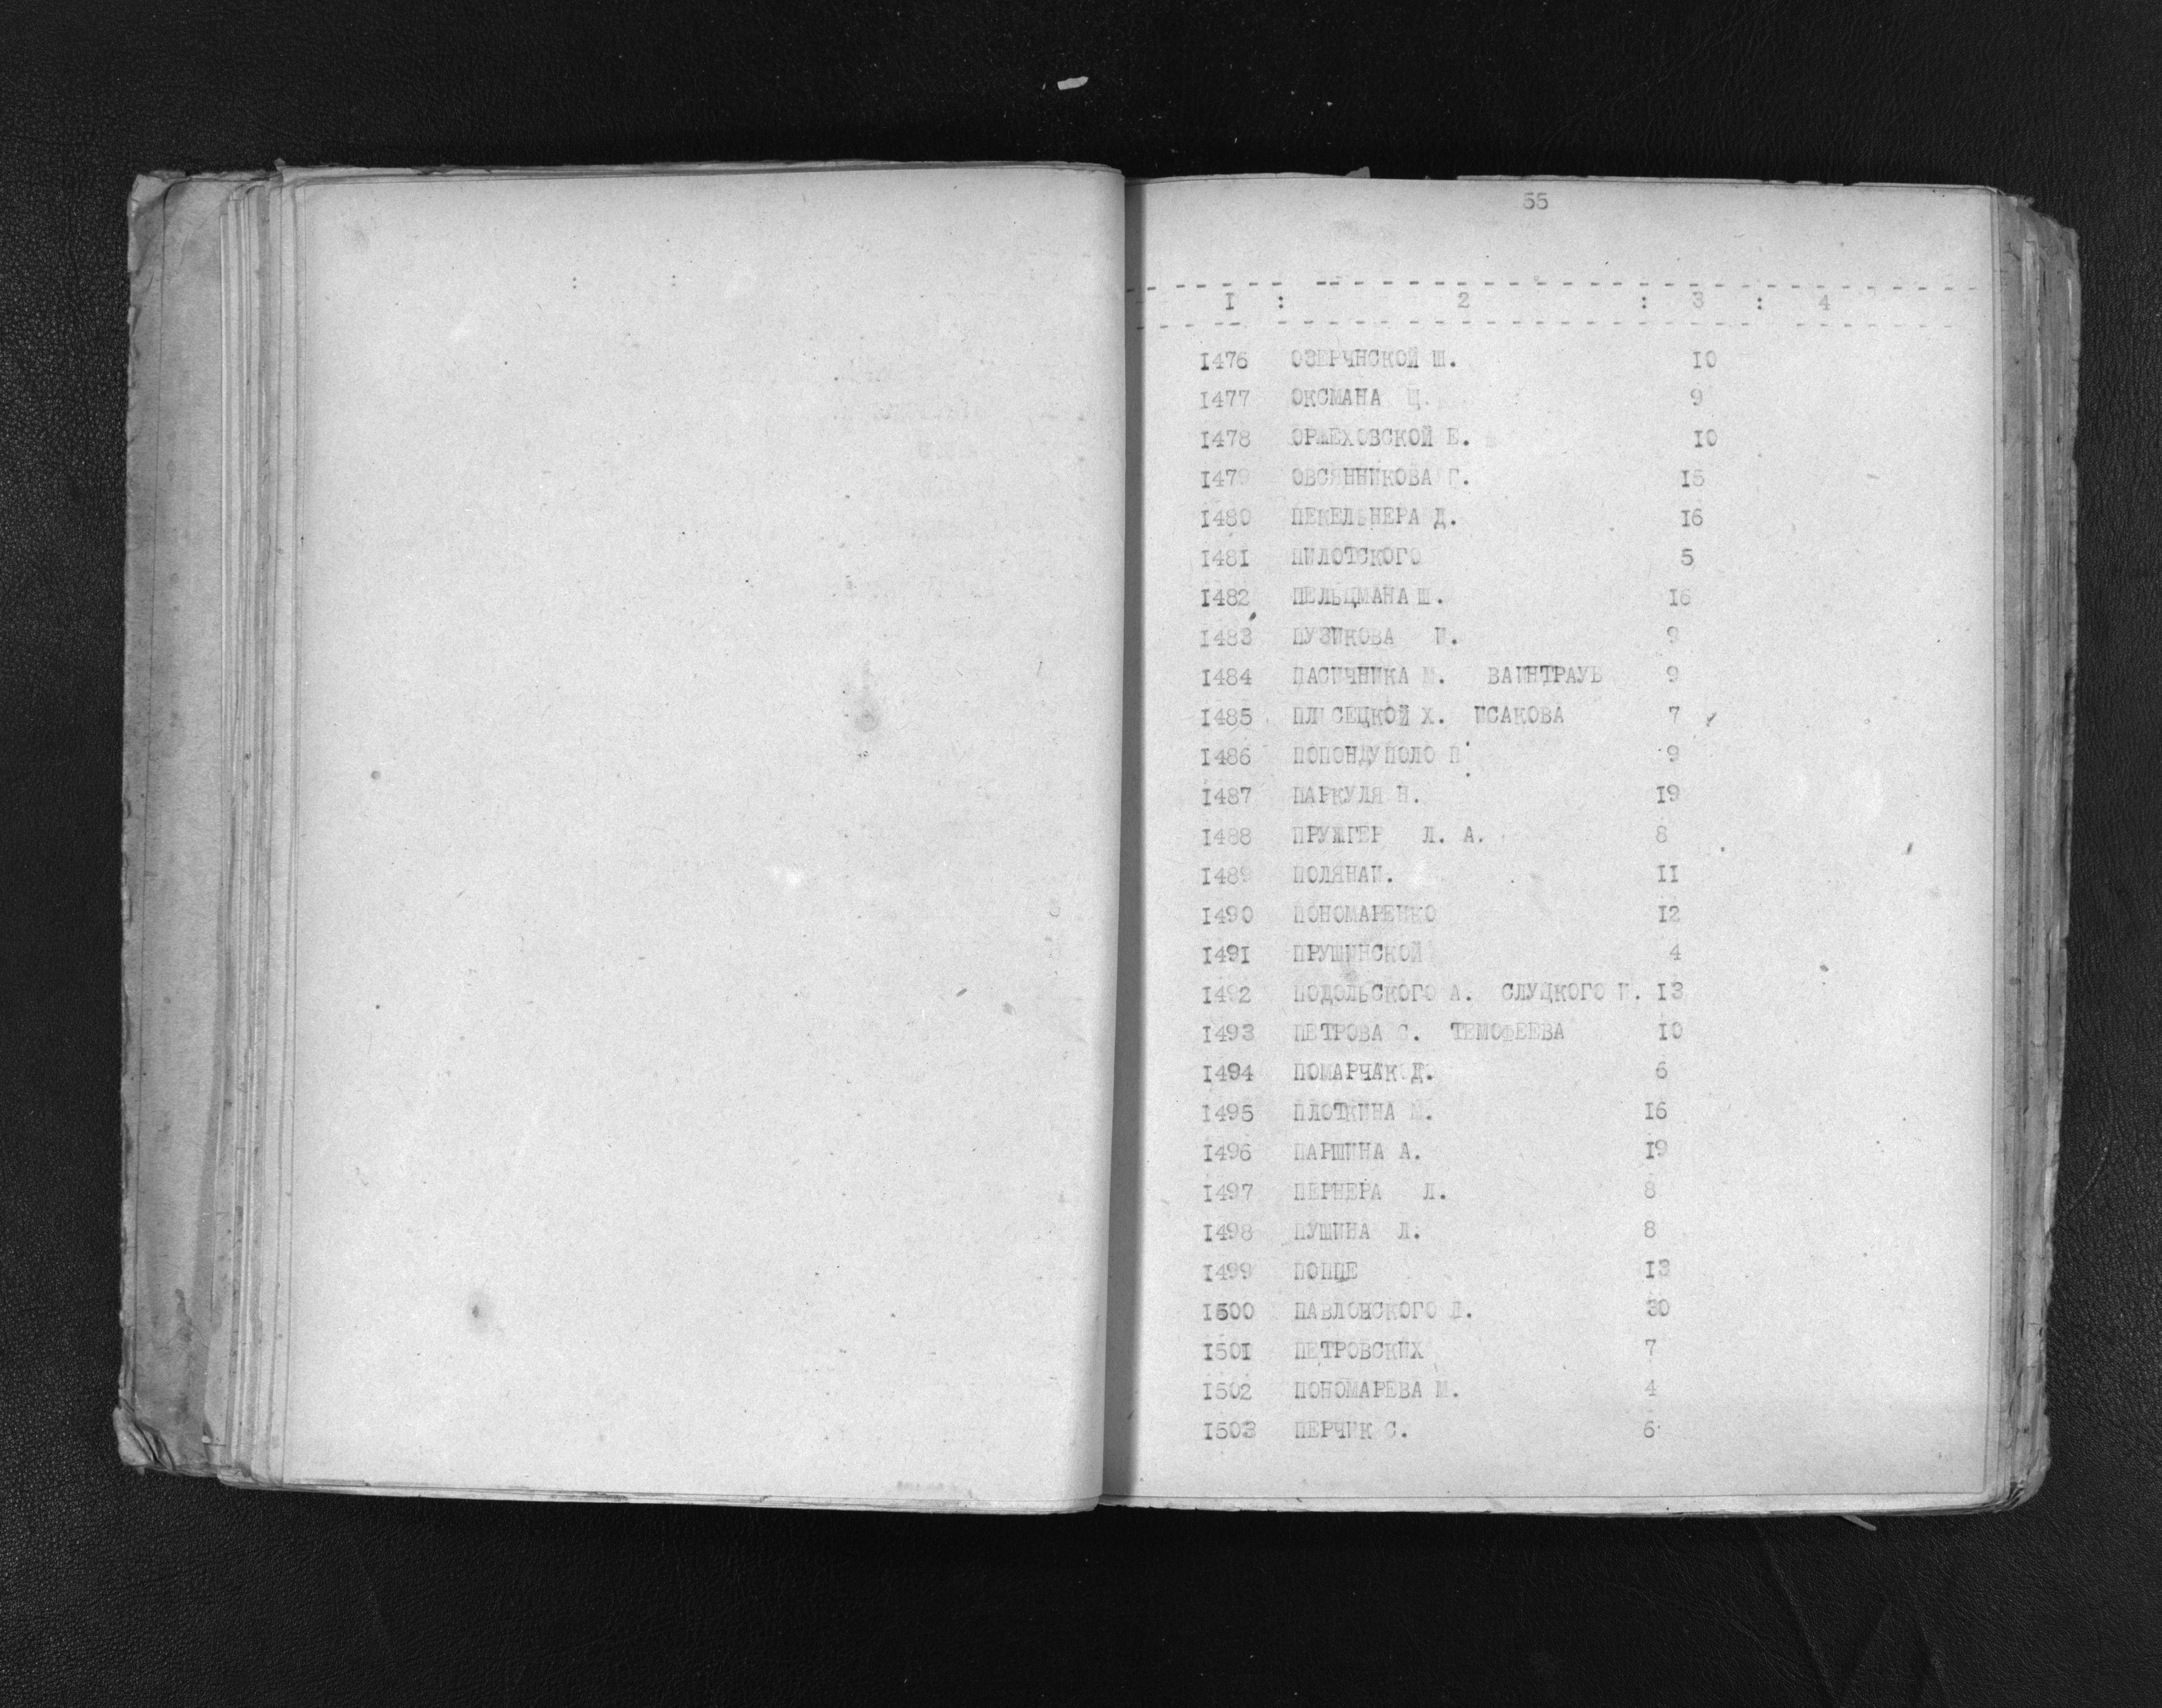 55
I : 2 : 3 : 4
I476 ОЗЕРЧНСКОЙ Ш. I0
I477 ОКСМАНА Ц. 9
I478 ОРЖЕХОВСКОЙ Е. I0
I479 ОВСЯННИКОВА Г. I5
I480 ПЕКЕЛЬНЕРА Д. I6
I48I ПИЛОТСКОГО 5
I482 ПЕЛЬЦМАНА Ш. I6
I483 ПУЗИКОВА И. 9
I484 ПАСИЧНИКА М. ВАИНТРАУБ 9
I485 ПЛИСЕЦКОЙ Х. ИСАКОВА 7
I486 ПОПОНДУПОЛО 9
I487 ПАРКУЛЯ Н. I9
I488 ПРУЖГЕР Л. А. 8
I489 ПОЛЯНАИ. II
I490 ПОНОМАРЕНКО I2
I49I ПРУШИНСКОЙ 4
I492 ПОДОЛЬСКОГО А. СЛУЦКОГО И. I3
I493 ПЕТРОВА С. ТИМОФЕЕВА I0
I494 ПОМАРЧАК Д. 6
I495 ПЛОТКИНА М. I6
I496 ПАРШИНА А. I9
I497 ПЕРНЕРА Л. 8
I498 ПУШИНА Л. 8
I499 ПОППЕ I3
I500 ПАВЛОНСКОГО 30
I50I ПЕТРОВСКИХ 7
I502 ПОНОМАРЕВА М. 4
I503 ПЕРЧИК С. 6